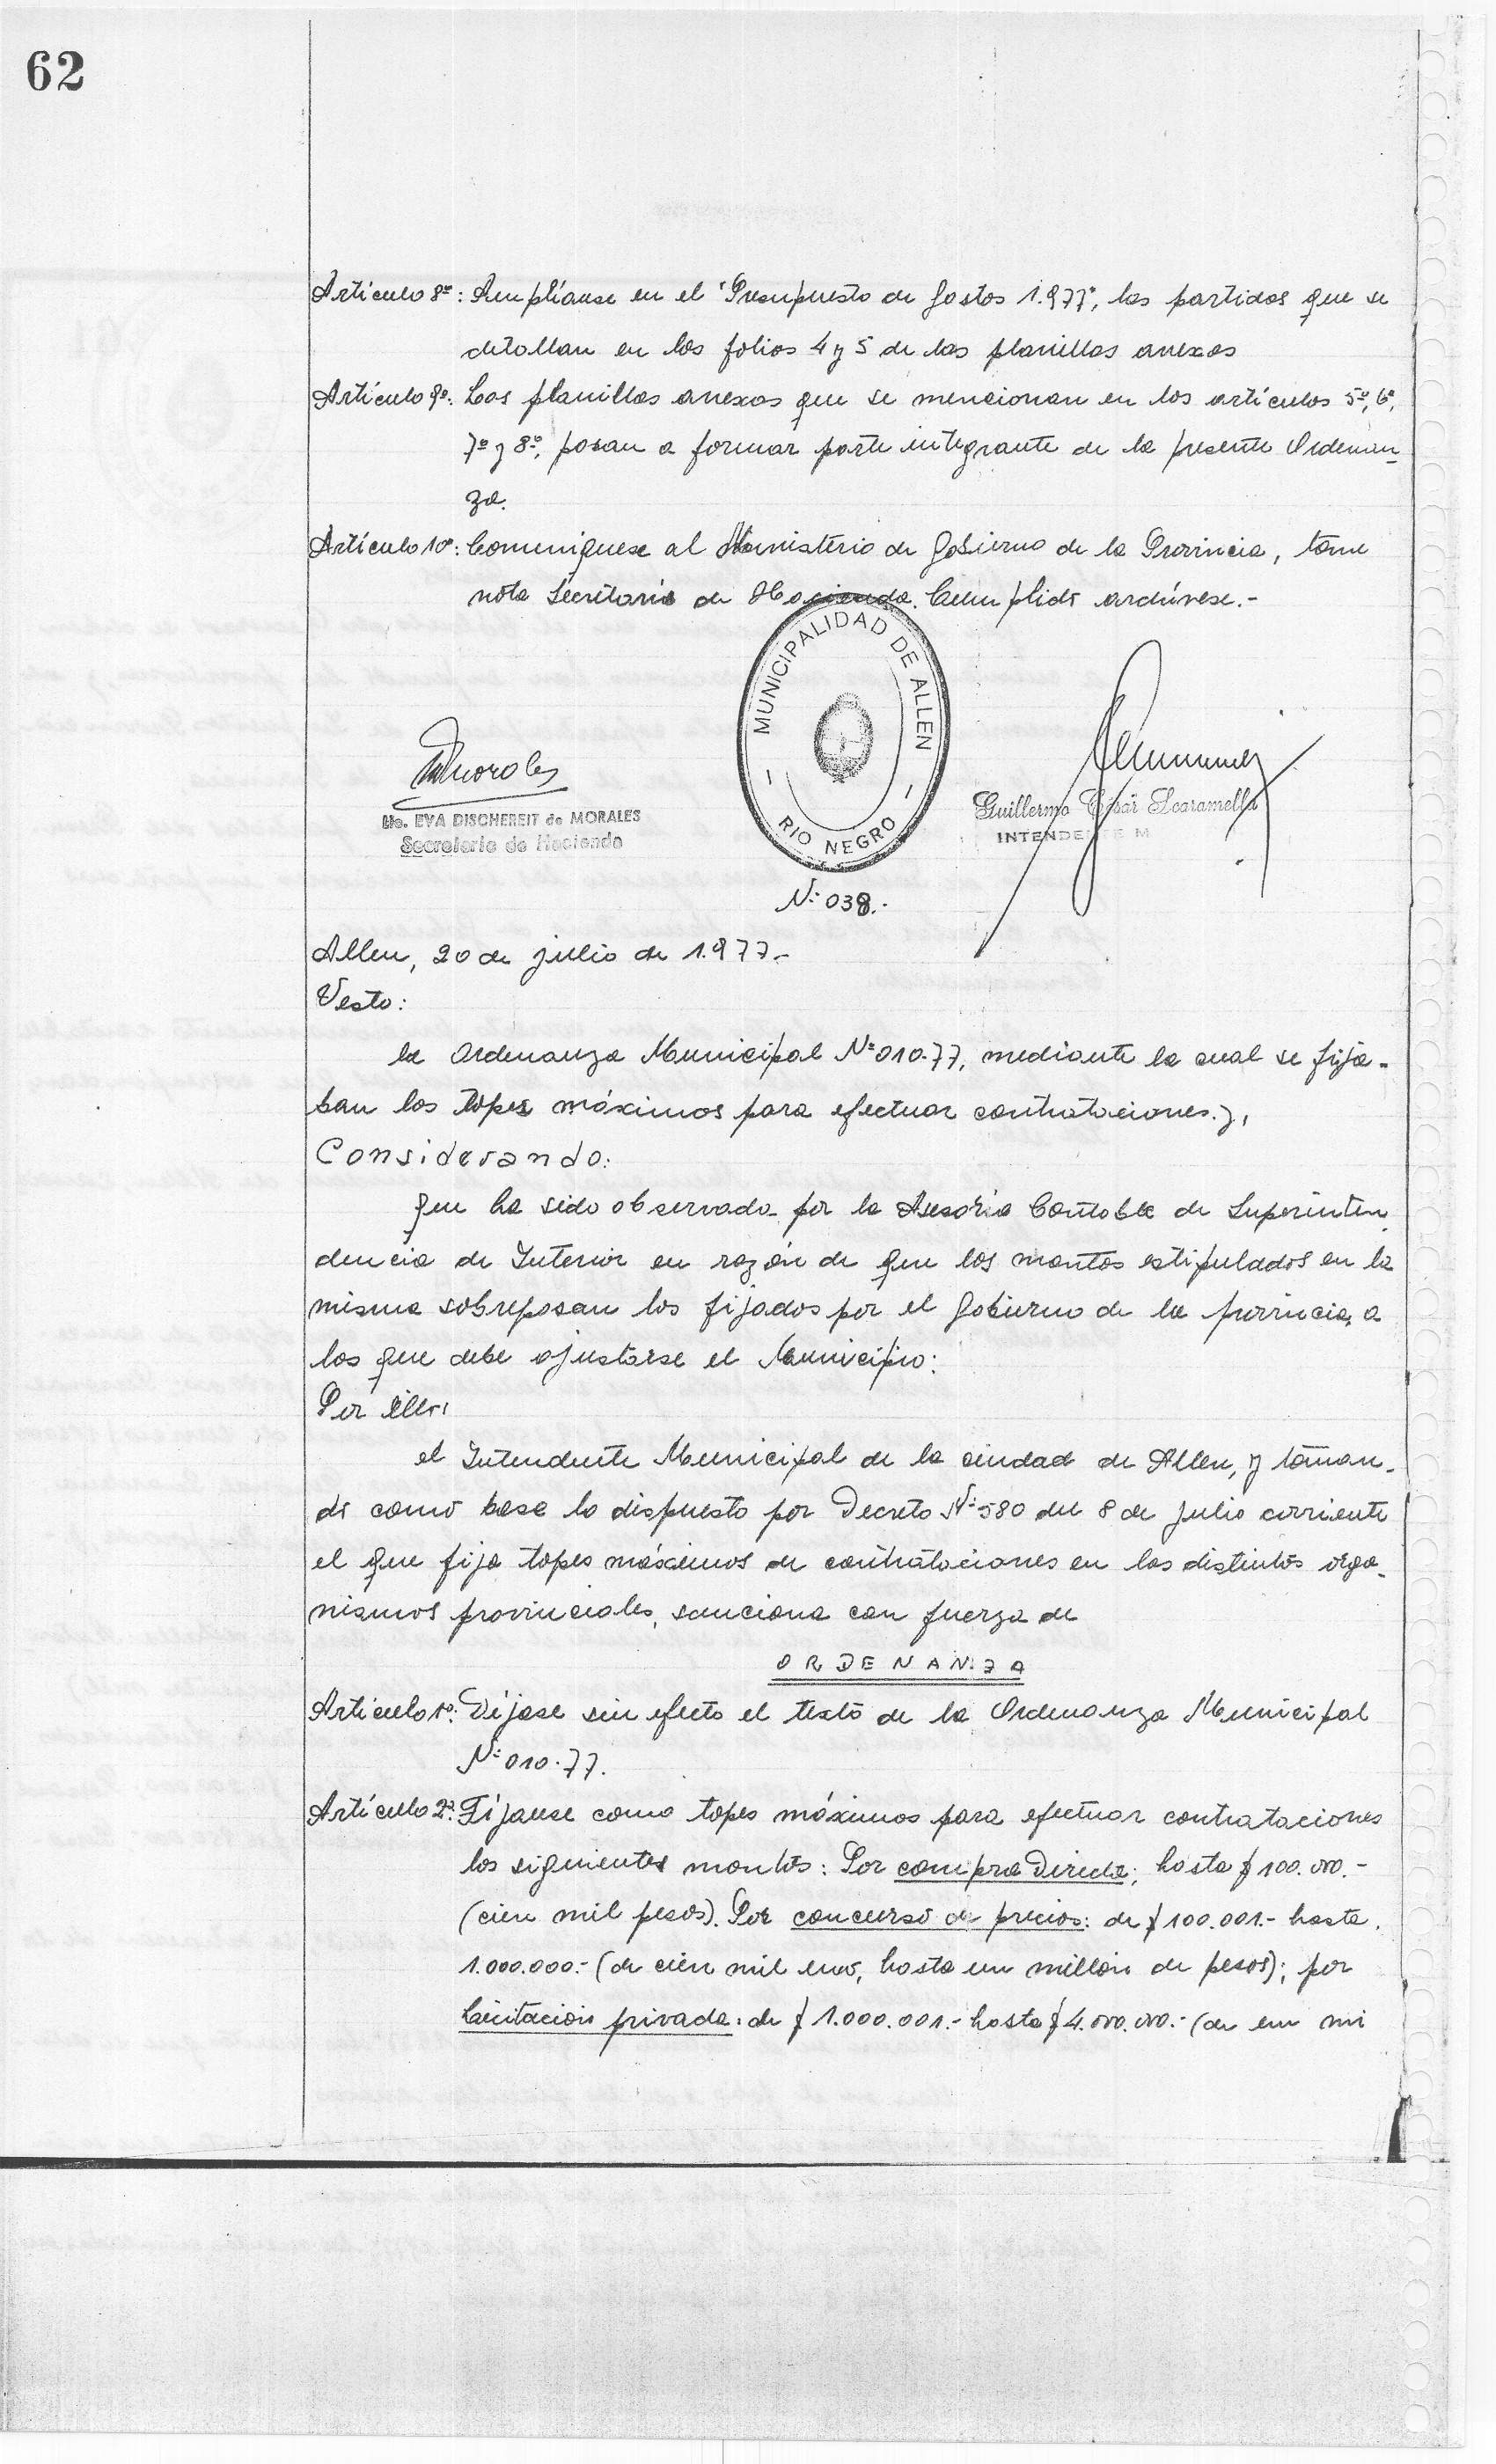 62
Artículo 8º: Amplíanse en el "Presupuesto de Gastos 1.977", las partidas que se
detallan en los folios 4 y 5 de las planillas anexas
Artículo 9º: Las planillas anexas que se mencionan en los artículos 5º, 6º,
7º y 8º, pasan a formar parte integrante de la presente Ordenan-
za.
Artículo 10º: Comuníquese al Ministerio de Gobierno de la Provincia, tome
nota Secretaría de Hacienda. Cumplido archívese.-
MUNICIPALIDAD DE ALLEN
- RIO NEGRO -
Morales
Lic. EVA DISCHEREIT de MORALES
Secretaria de Hacienda
Guillermo César Scaramella
INTENDENTE M
Nº 038.-
Allen, 20 de julio de 1.977.-
Visto:
la Ordenanza Municipal Nº 010-77, mediante la cual se fija-
ban los topes máximos para efectuar contrataciones y,
Considerando:
que ha sido observada por la Asesoría Contable de Superinten-
dencia de Interior en razón de que los montos estipulados en la
misma sobrepasan los fijados por el Gobierno de la provincia, a
los que debe ajustarse el Municipio:
Por ello,
el Intendente Municipal de la ciudad de Allen, y toman-
do como base lo dispuesto por Decreto Nº 580 del 8 de julio corriente
el que fija topes máximos de contrataciones en los distintos orga-
nismos provinciales, sanciona con fuerza de
ORDENANZA
Artículo 1º: Déjase sin efecto el texto de la Ordenanza Municipal
Nº 010-77.
Artículo 2º: Fíjanse como topes máximos para efectuar contrataciones
los siguientes montos: Por compra Directa; hasta $ 100.000.-
(cien mil pesos). Por concurso de precios: de $ 100.001.- hasta
1.000.000.- (de cien mil uno, hasta un millón de pesos); por
licitación privada: de $ 1.000.001.- hasta $ 4.000.000.- (de un mi